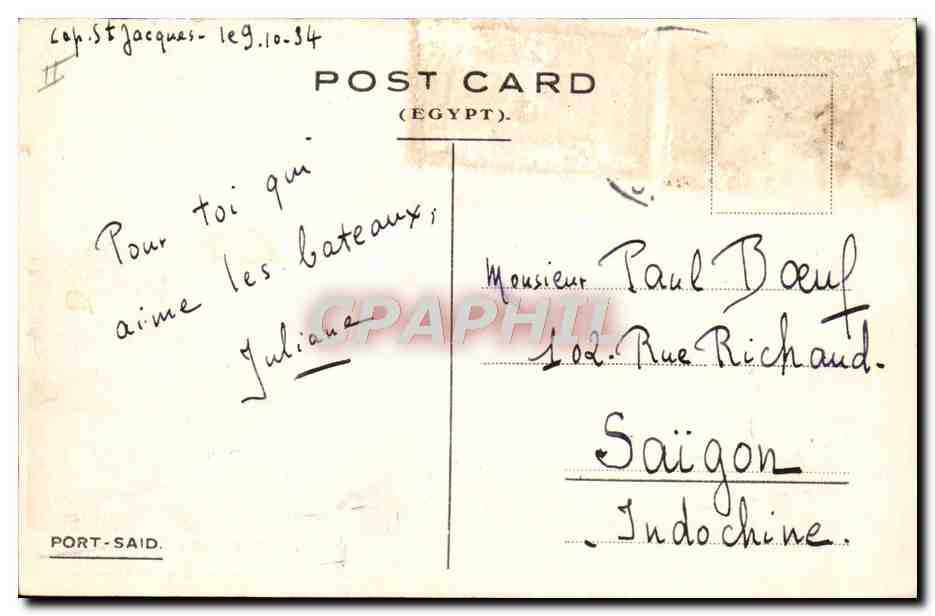 Cap. St Jacques - le 9.10-34
II
POST CARD
(EGYPT).
Pour toi qui
aime les bateaux,
Juliane
Monsieur Paul Bœuf
102. Rue Richaud.
Saïgon
Indochine.
PORT-SAID.
CPAPHIL